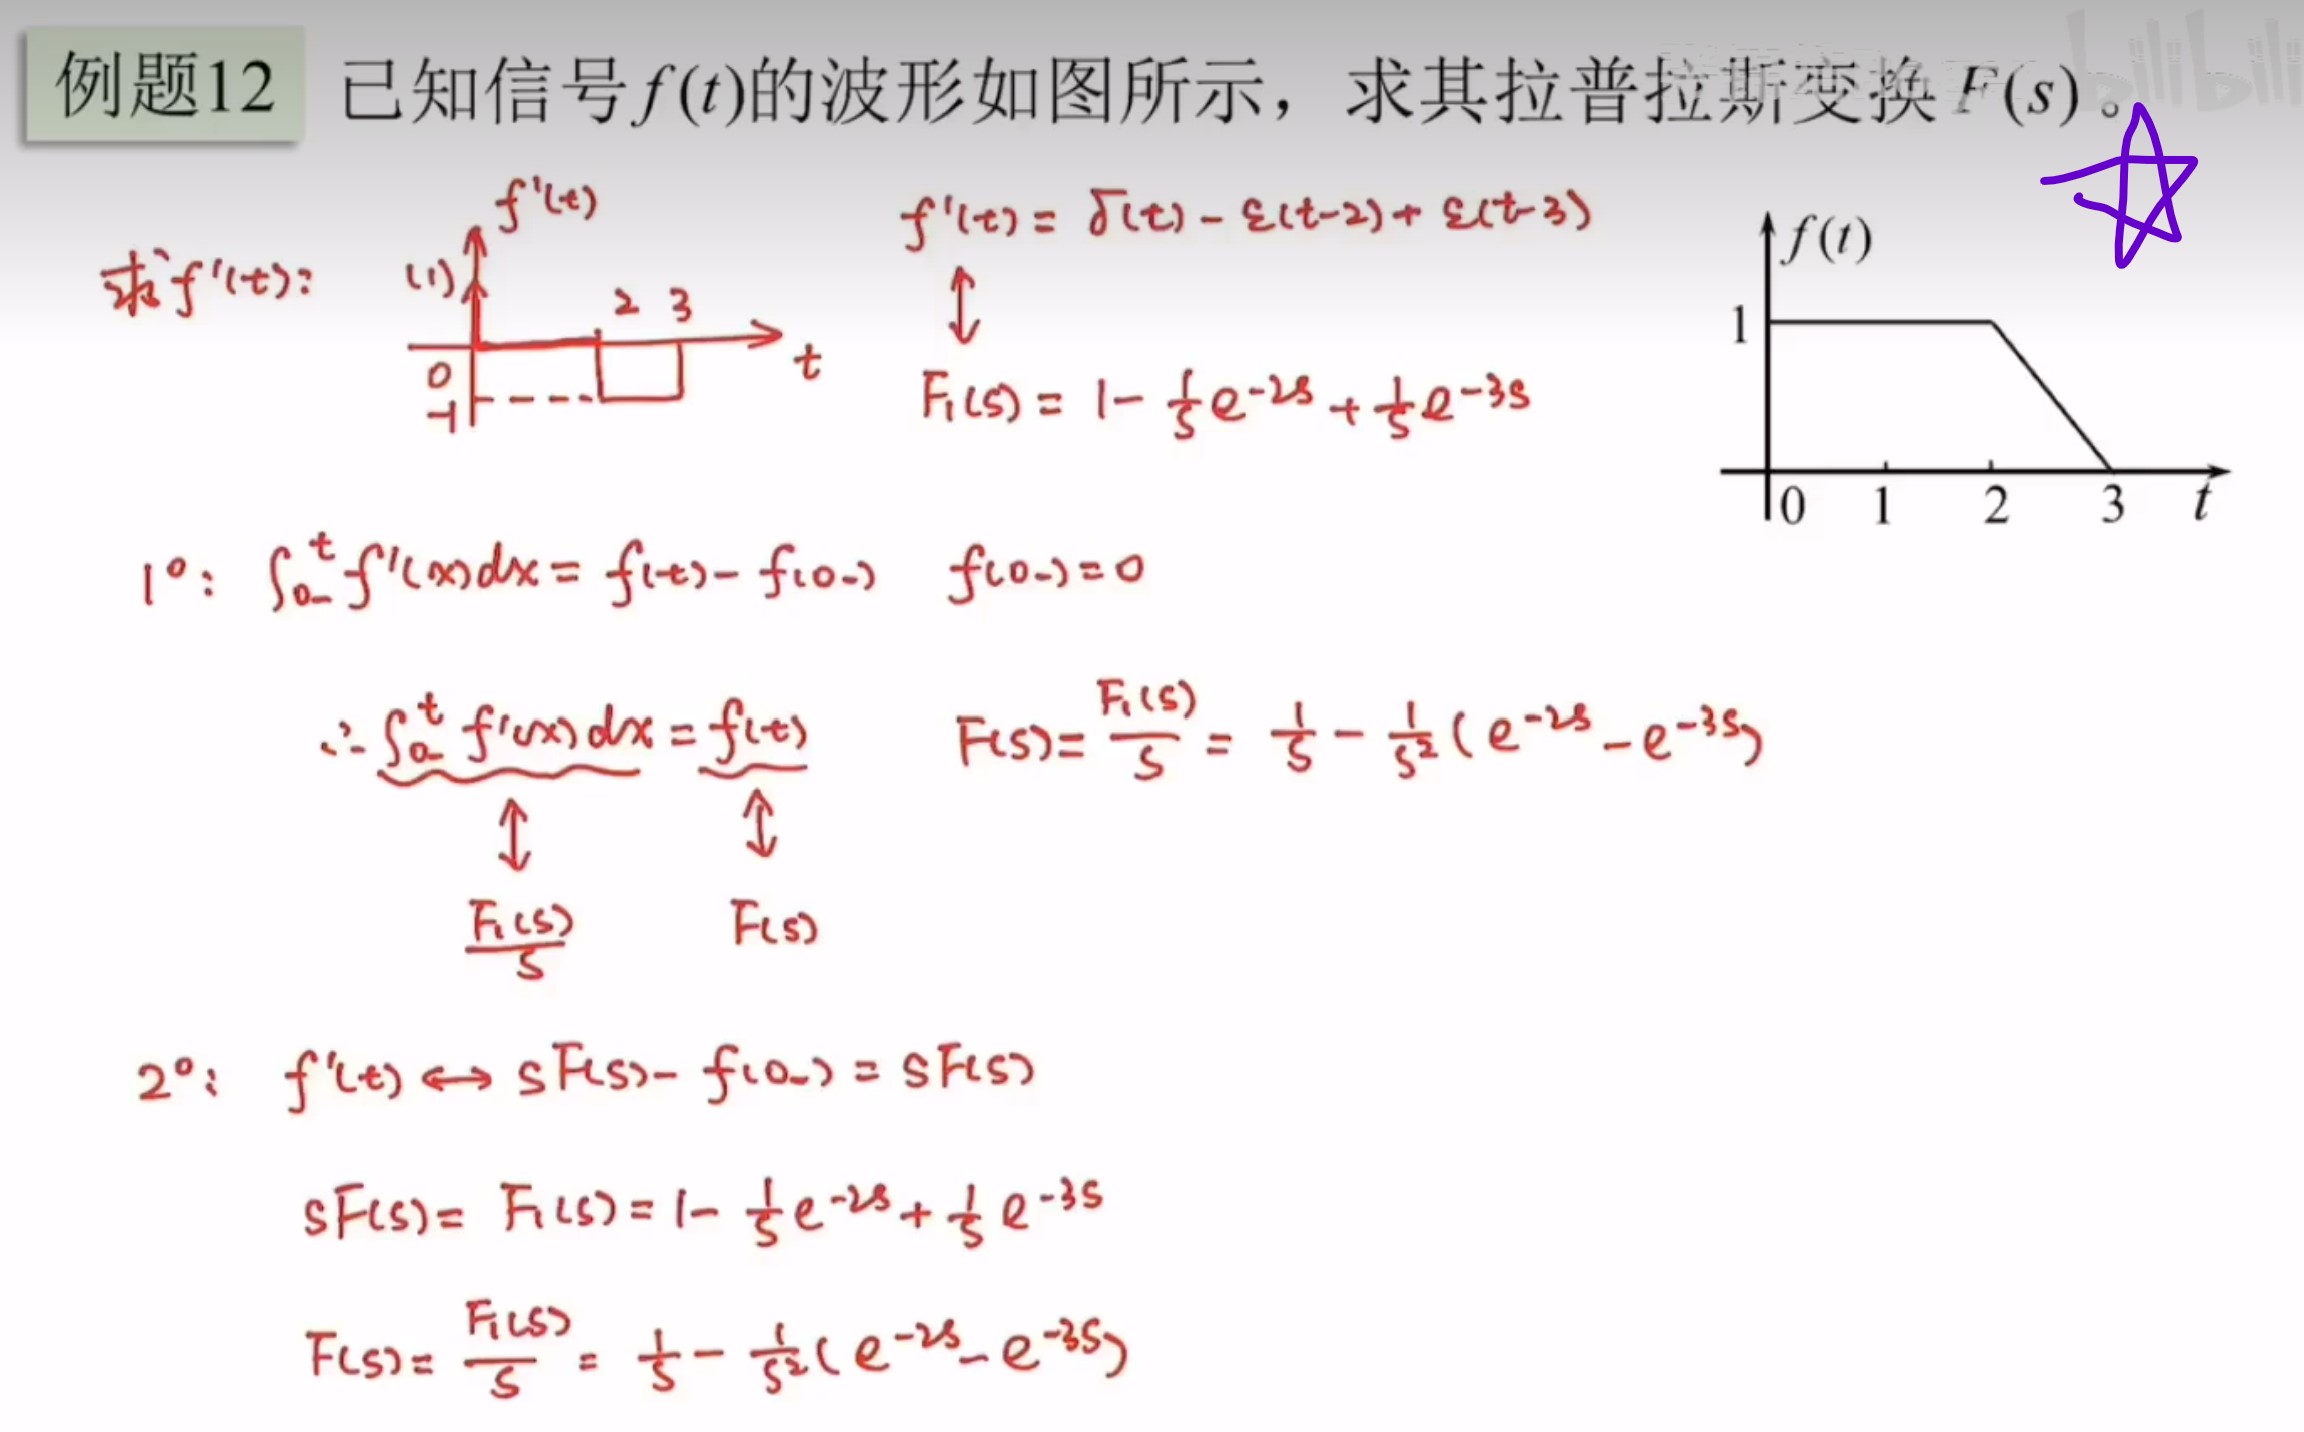 例题12 已知信号f(t)的波形如图所示，求其拉普拉斯变换F(s)。
bilibili
求f'(t)：
f'(t)
(1)
2 3
0
-1
t
f'(t) = δ(t) - ε(t-2) + ε(t-3)
↕
F₁(s) = 1 - 1/s e^{-2s} + 1/s e^{-3s}
f(t)
1
0 1 2 3 t
1°： ∫_{0-}^{t} f'(x)dx = f(t) - f(0-) f(0-) = 0
∴ ∫_{0-}^{t} f'(x)dx = f(t) F(s) = F₁(s)/s = 1/s - 1/s² (e^{-2s} - e^{-3s})
↕ ↕
F₁(s)/s F(s)
2°： f'(t) ↔ sF(s) - f(0-) = sF(s)
sF(s) = F₁(s) = 1 - 1/s e^{-2s} + 1/s e^{-3s}
F(s) = F₁(s)/s = 1/s - 1/s² (e^{-2s} - e^{-3s})